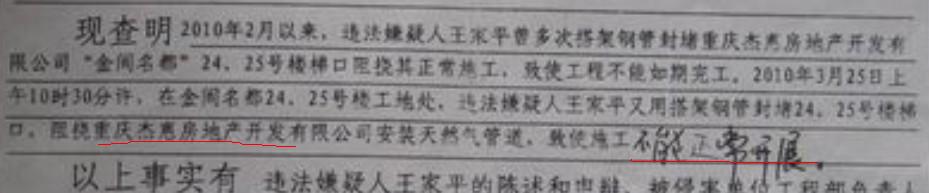 现查明2010年2月以来，违法嫌疑人王家平曾多次搭架钢管封堵重庆杰恵房地产开发有
限公司“金阁名都”24、25号楼梯口阻挠其正常施工，致使工程不能如期完工。2010年3月25日上
午10时30分许，在金阁名都24、25号楼工地处，违法嫌疑人王家平又用搭架钢管封堵24、25号楼梯
口，阻挠重庆杰恵房地产开发有限公司安装天然气管道，致使施工不能正常开展。
以上事实有 违法嫌疑人王家平的陈述和申辩、被侵害单位工程部负责人